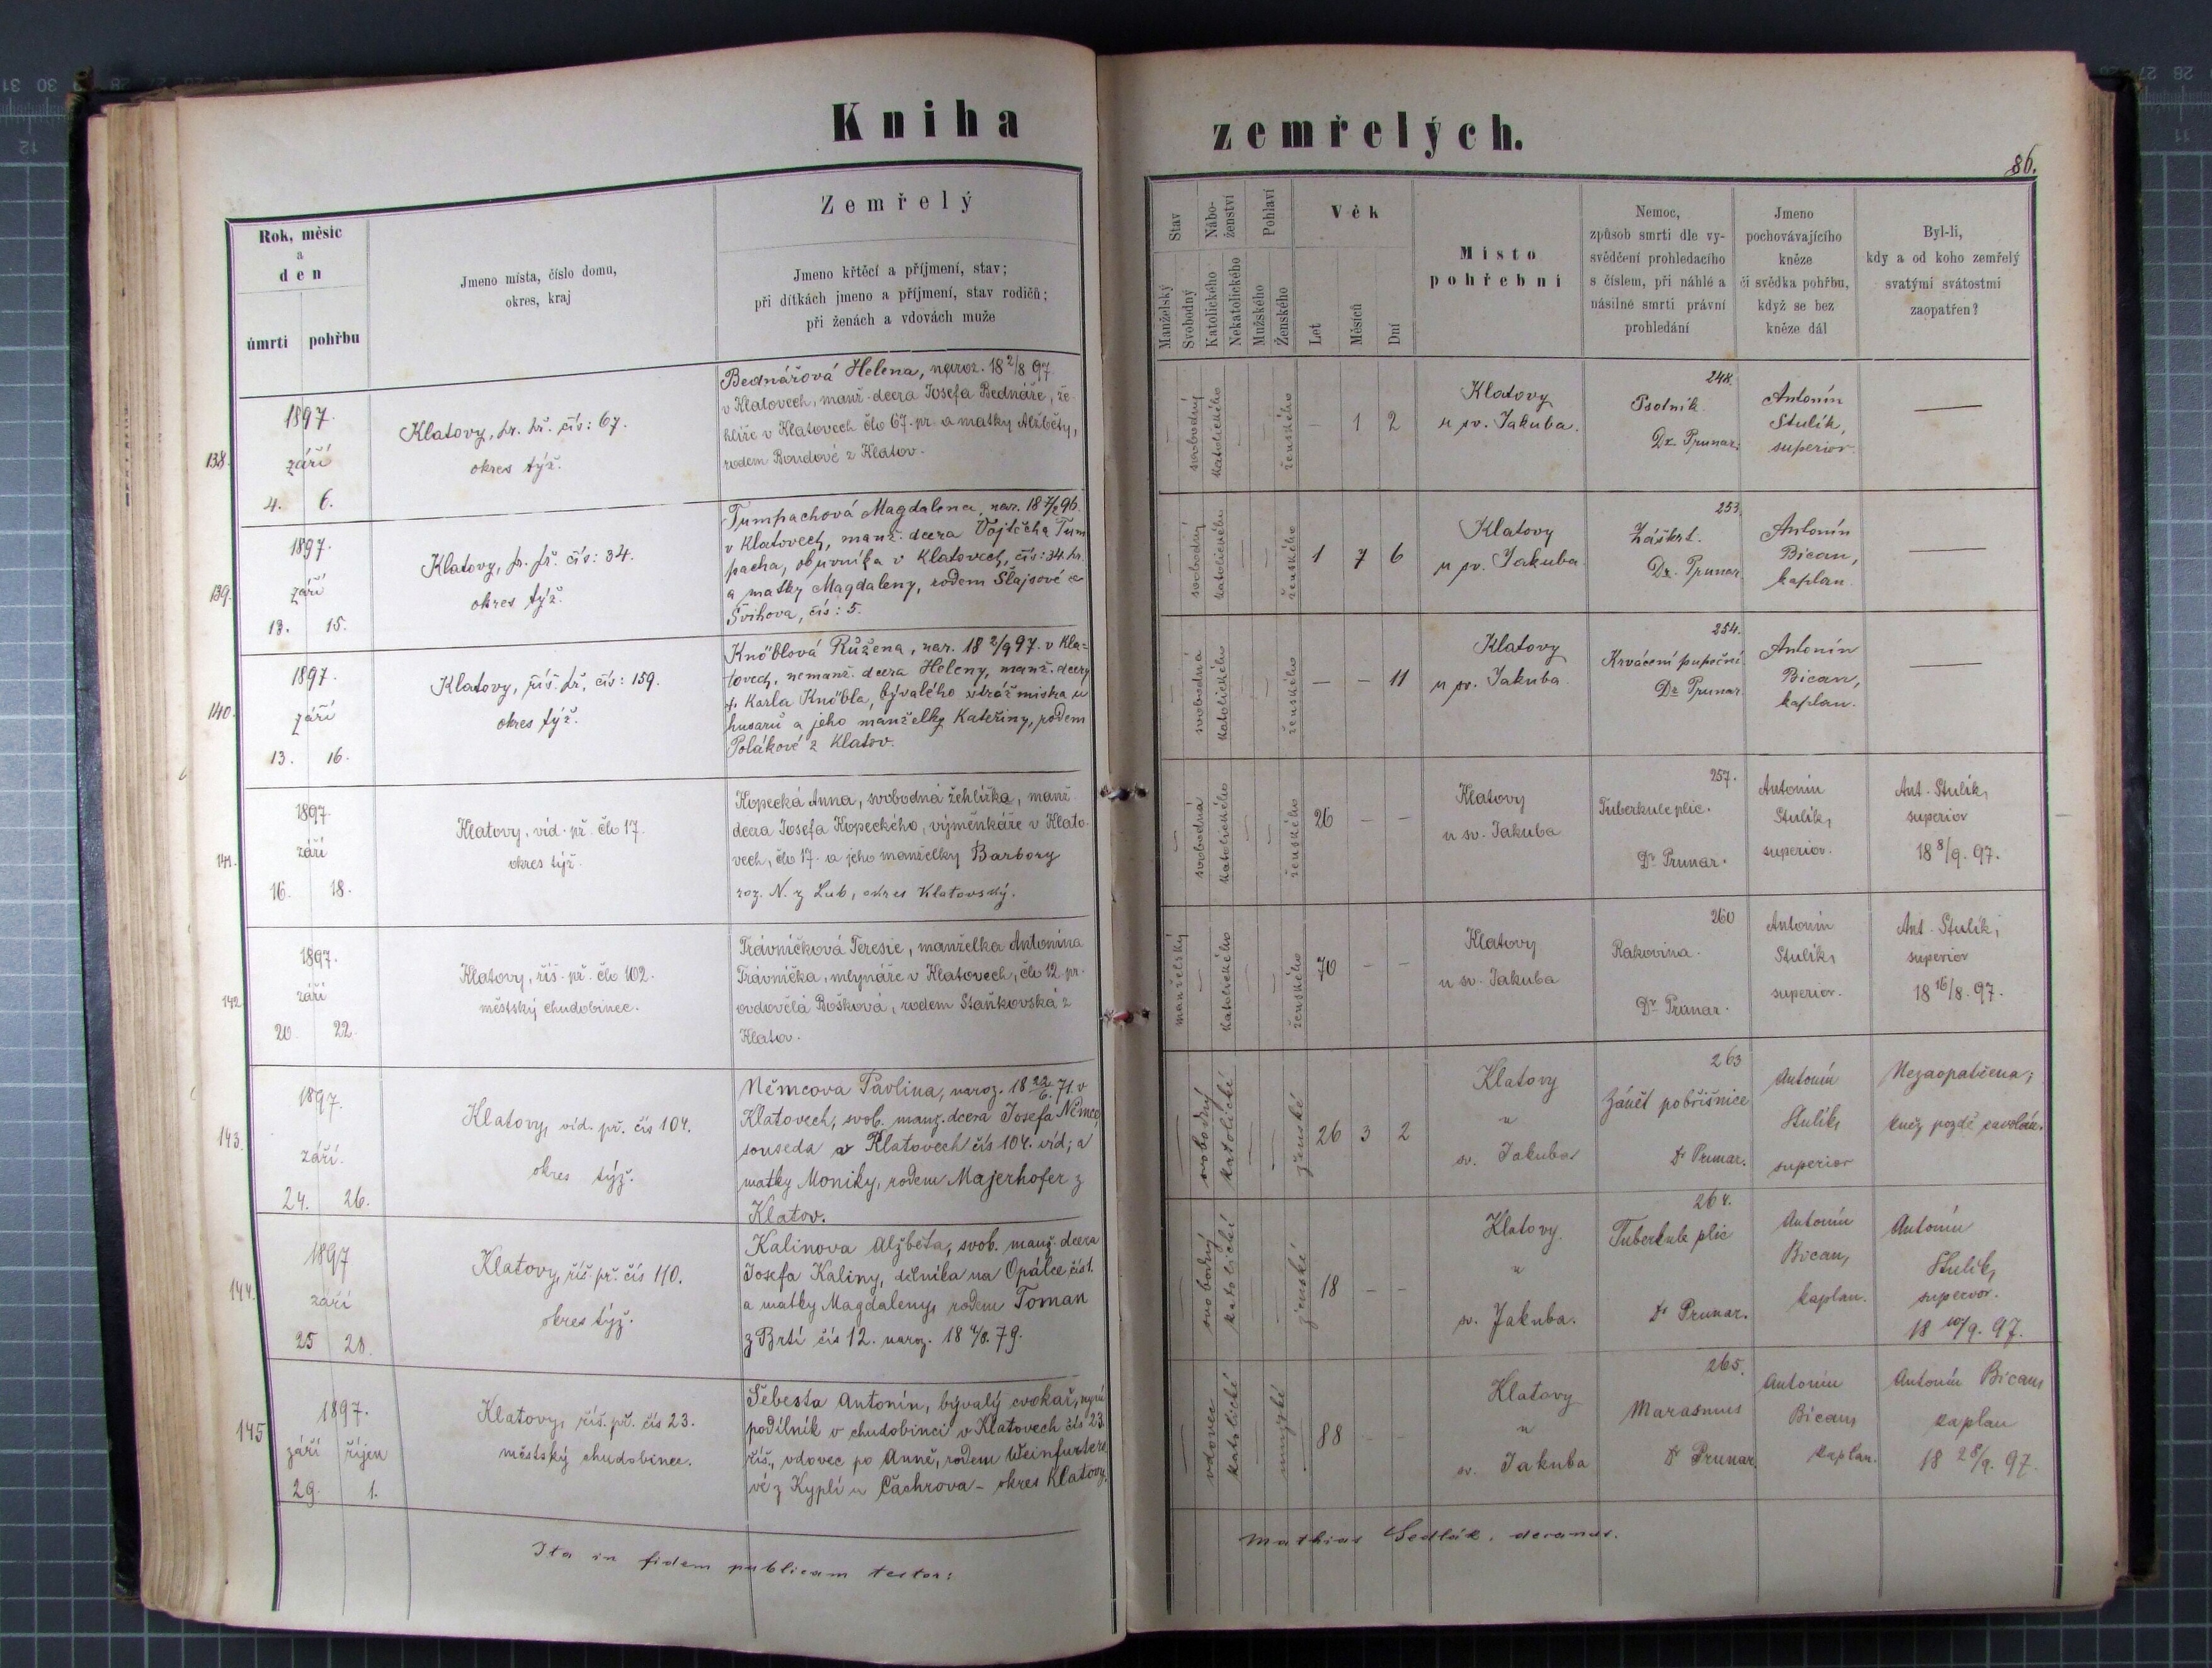 Kniha zemřelých.
86.
Rok, měsíc
a
den
úmrti pohřbu
Jmeno místa, číslo domu,
okres, kraj
Zemřelý
Jmeno křtěcí a příjmení, stav;
při dítkách jmeno a příjmení, stav rodičů;
při ženách a vdovách muže
Stav
Manželský
Svobodný
Nábo-
ženství
Katolického
Nekatolického
Pohlaví
Mužského
Ženského
Věk
Let
Měsíců
Dní
Místo
pohřebni
Nemoc,
způsob smrti dle vy-
svědčení prohledacího
s číslem, při náhlé a
násilné smrti právní
prohledání
Jmeno
pochovávajícího
kněze
či svědka pohřbu,
když se bez
kněze dál
Byl-li,
kdy a od koho zemřelý
svatými svátostmi
zaopatřen?
138.
1897.
září
4. 6.
Klatovy, pr. př. čís: 67.
okres týž.
Bednářová Helena, naroz. 18 2/8 97
v Klatovech, manž. dcera Josefa Bednáře, že-
hlíře v Klatovech člo 67. pr. a matky Alžběty,
rodem Boudové z Klatov.
svobodný
katolického
ženského
– 1 2
Klatovy
u sv. Jakuba.
248.
Psotník
Dr. Prunar.
Antonín
Stulík,
superior
—
139.
1897.
září
13. 15.
Klatovy, pr. př. čís: 34.
okres týž.
Tumpachová Magdalena, nar. 18 7/2 96.
v Klatovech, manž. dcera Vojtěcha Tum
pacha, obuvníka v Klatovech, čís: 34. pr.
a matky Magdaleny, rodem Šlajsové ze
Švihova, čís: 5.
svobodný
katolického
ženského
1 7 6
Klatovy
u sv. Jakuba
253.
Záškrt.
Dr. Prunar
Antonín
Bican,
kaplan.
—
140.
1897.
září
13. 16.
Klatovy, říš. př. čís: 159.
okres týž.
Knöblová Růžena, nar. 18 2/9 97. v Kla=
tovech, nemanž. dcera Heleny, manž. dcery
† Karla Knöbla, bývalého strážmistra u
husarů a jeho manželky Kateřiny, rodem
Polákové z Klatov.
svobodná
katolického
ženského
– – 11
Klatovy
u sv. Jakuba
254.
Krvácení pupeční
Dr. Prunar
Antonín
Bican,
kaplan.
—
141.
1897
září
16. 18.
Klatovy, víd. př. člo 17.
okres týž.
Kopecká Anna, svobodná žehlířka, manž.
dcera Josefa Kopeckého, výměnkáře v Klato-
vech, člo 17. a jeho manželky Barbory
roz. N. z Lub, okres Klatovský.
svobodná
katolického
ženského
26 – –
Klatovy
u sv. Jakuba
257.
Tuberkule plic.
Dr Prunar.
Antonín
Stulík,
superior.
Ant. Stulík,
superior
18 8/9. 97.
142
1897.
září
20. 22.
Klatovy, říš. př. člo 102.
městský chudobinec.
Trávníčková Teresie, manželka Antonína
Trávníčka, mlynáře v Klatovech, člo 12 pr.
ovdovělá Bošková, rodem Staňkovská z
Klatov.
manželský
katolického
ženského
70 – –
Klatovy
u sv. Jakuba
260
Rakovina.
Dr Prunar.
Antonín
Stulík,
superior.
Ant. Stulík,
superior
18 16/8. 97.
143.
1897.
září.
24. 26.
Klatovy, víd. př. čís 104.
okres týž.
Němcova Pavlina, naroz. 18 22/6. 71. v
Klatovech, svob. manž. dcera Josefa Němce,
souseda v Klatovech čís 104. víd; a
matky Moniky, rodem Majerhofer z
Klatov.
svobodný
katolické
ženské
26 3 2
Klatovy
u
sv. Jakuba
263
Zánět pobřišnice
Dr Prunar.
Antonín
Stulík,
superior
Nezaopatřena;
kněz pozdě zavolán.
144.
1897
září
25 28.
Klatovy, říš. př. čís 110.
okres týž.
Kalinova Alžběta, svob. manž. dcera
Josefa Kaliny, dělníka na Opálce čís 1.
a matky Magdaleny, rodem Toman
z Brtí čís 12. naroz. 18 4/8. 79.
svobodný
katolické
ženské
18 – –
Klatovy
u
sv. Jakuba.
264.
Tuberkule plic
Dr Prunar.
Antonín
Bican,
kaplan.
Antonín
Stulík,
superior.
18 10/9. 97.
145
1897.
září říjen
29. 1.
Klatovy, říš. př. čís 23.
městský chudobinec.
Šebesta Antonín, bývalý cvokař, nyní
podílník v chudobinci v Klatovech čís 23
říš., vdovec po Anně, rodem Weinfurtero
vé z Kyplí u Čachrova – okres Klatovy.
vdovec
katolické
mužské
88 – –
Klatovy
u
sv. Jakuba
265.
Marasmus
Dr Prunar
Antonín
Bican,
kaplan.
Antonín Bican,
kaplan
18 28/9. 97.
Ita in fidem publicam testor:
Mathias Sedlák, decanus.